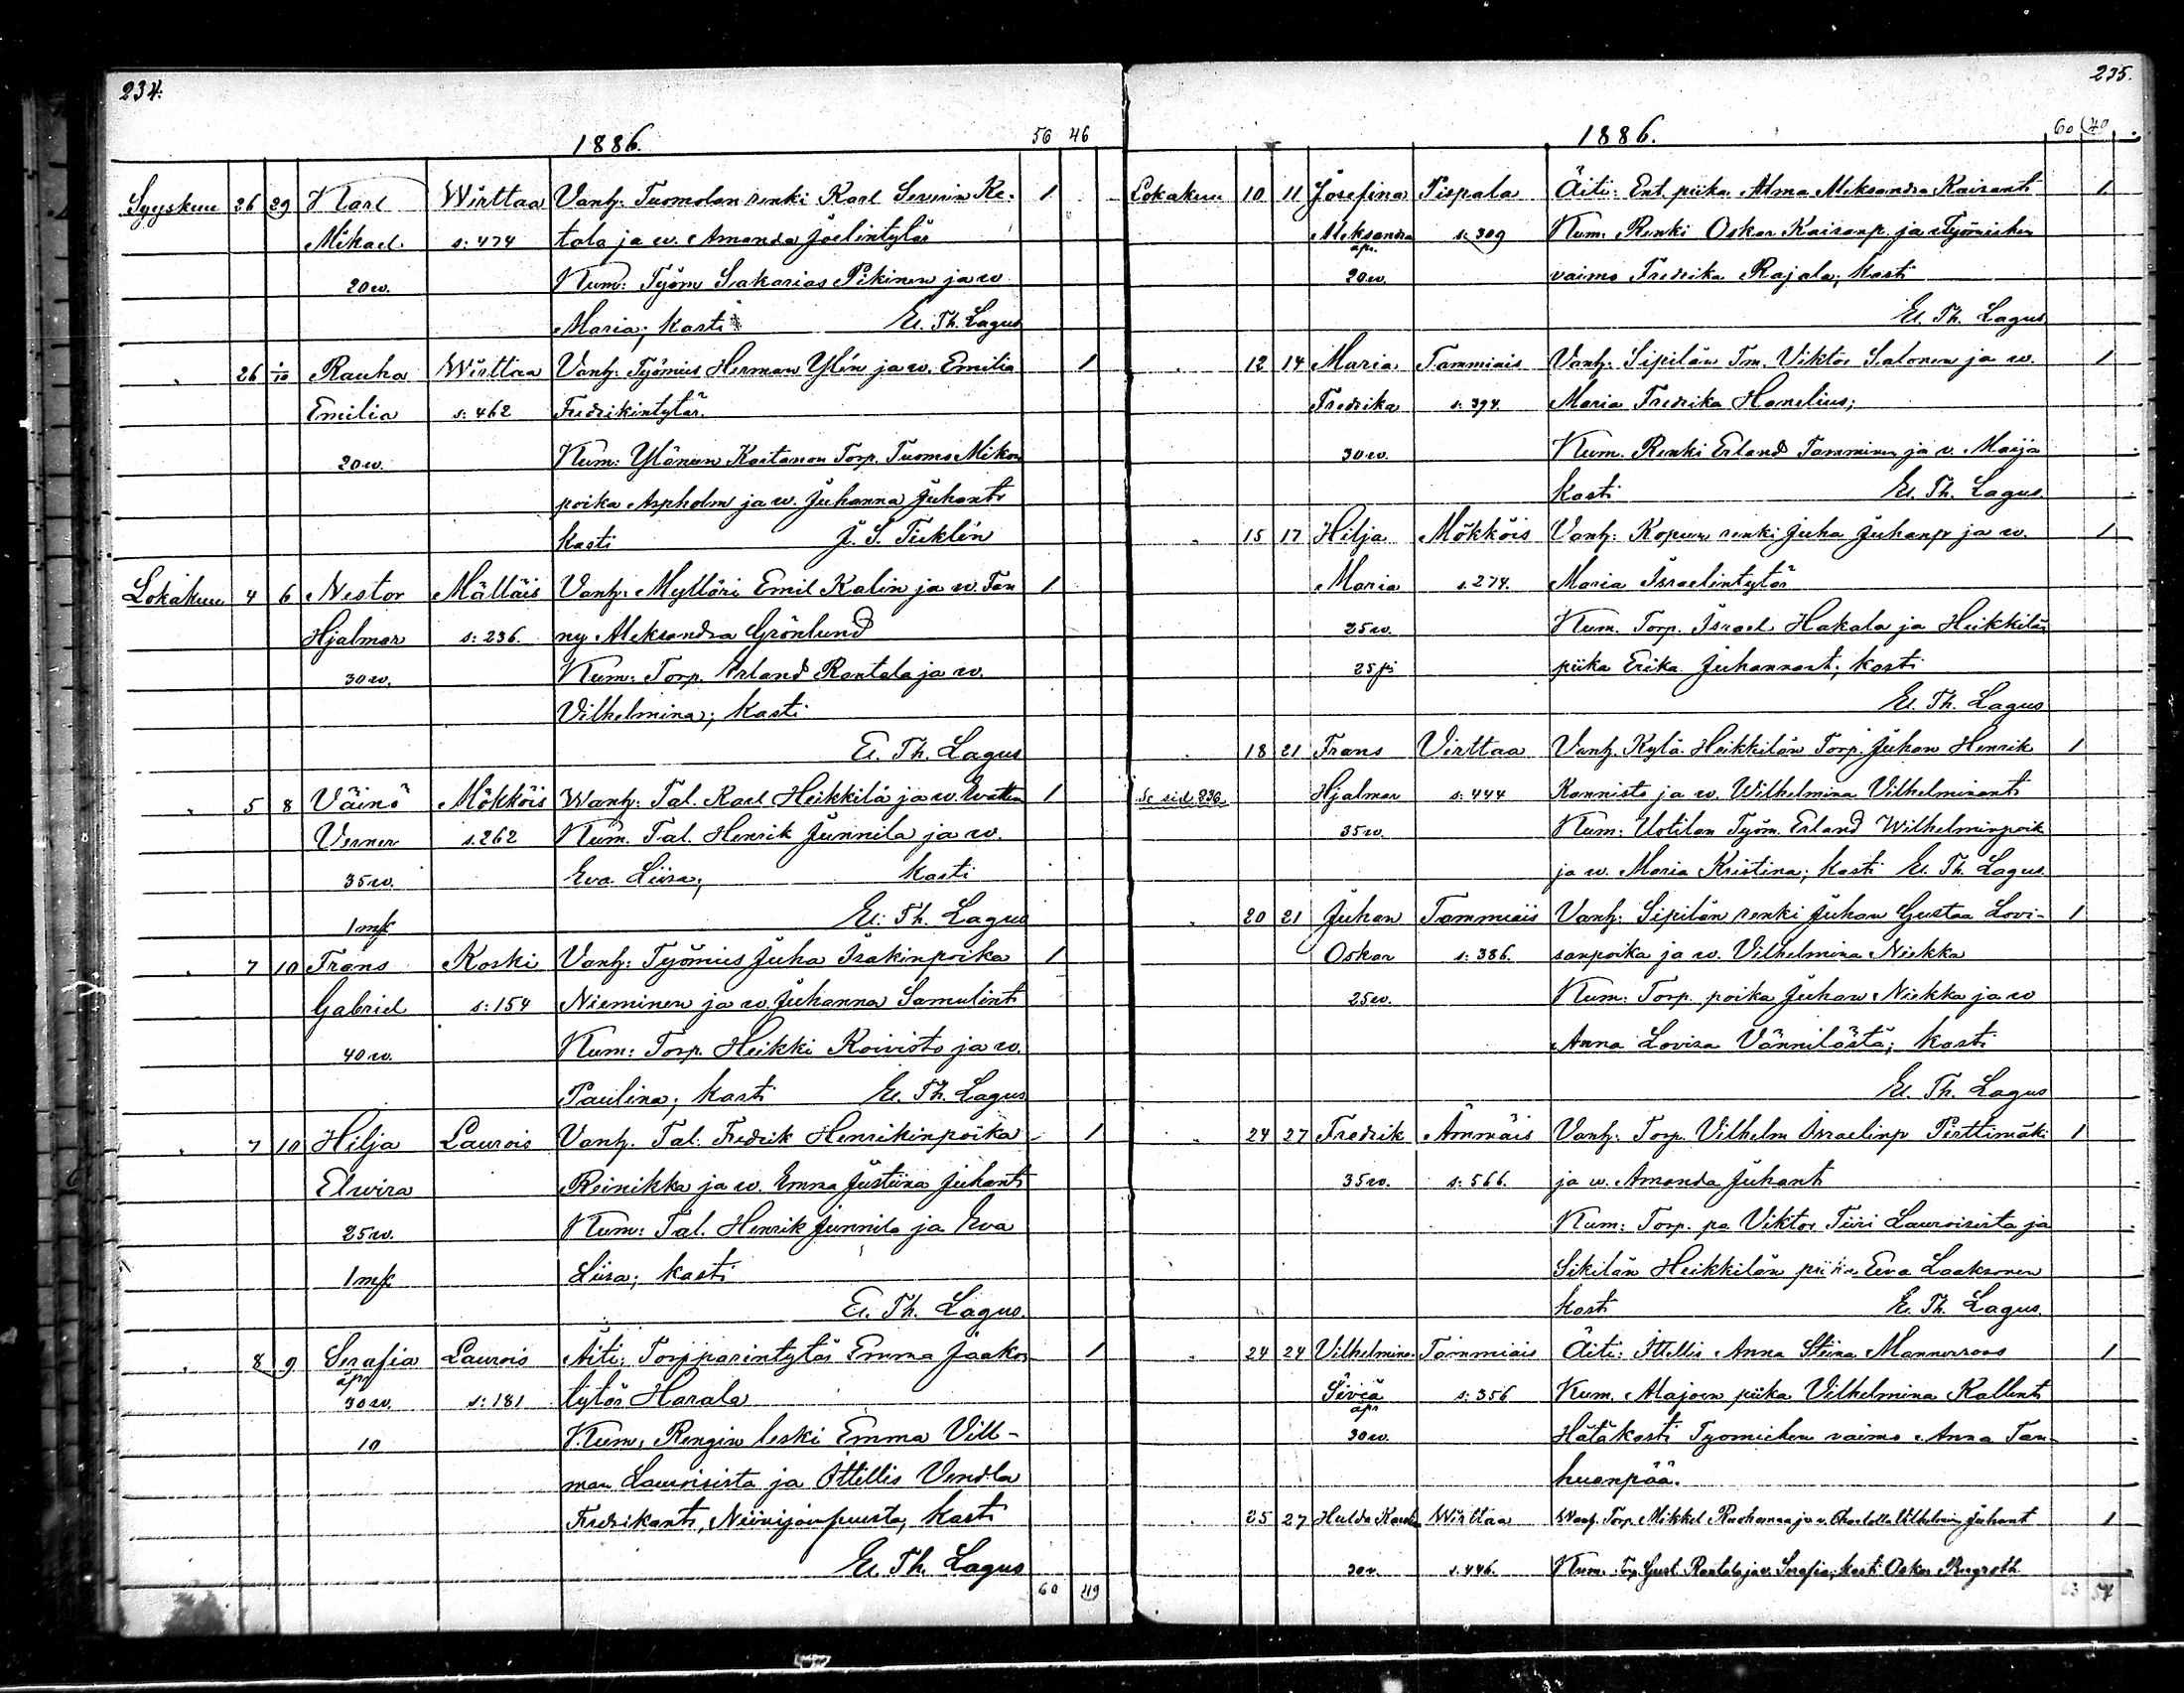 234.
1886.
56 46
Syyskuu 26 29 Karl Wirttaa Vanh: Tuomolan renki Karl Severin Ka- 1
Mikael s: 474 tala ja w. Amanda Joelintytär
20 w. Kum: Työm Sakarias Pikinen ja w
Maria; kasti El. Th. Lagus
" 26 1/10 Rauha Wirttaa Vanh: Työmies Herman Ylén ja w. Emilia 1
Emilia s: 462 Fredrikintytär.
20 w. Kum: Ylänen Kartanon Torp. Tuomo Mikon
poika Aspholm ja w. Juhanna Juhant:
kasti J. S. Ticklén
Lokakuu 4 6 Nestor Mälläis Vanh: Mylläri Emil Kalin ja w. Fan 1
Hjalmar s: 236. ny Aleksandra Grönlund
30 w. Kum: Torp. Erland Rantala ja w.
Vilhelmina; kasti
El. Th. Lagus
" 5 8 Väinö Mökköis Wanh: Tal. Karl Heikkilä ja w. 1
Verner s. 262 Kum. Tal. Henrik Junnila ja w.
35 w. Eva Liisa; kasti
1 mk El. Th. Lagus
" 7 10 Frans Koski Vanh: Työmies Juha Isakinpoika 1
Gabriel s: 154 Nieminen ja w. Juhanna Samulint:
40 w. Kum: Torp. Heikki Koivisto ja w.
Paulina; kasti El. Th. Lagus
" 7 10 Hilja Laurois Vanh. Tal. Fredrik Henrikinpoika 1
Elwira Reinikka ja w. Emma Justiina Juhant:
25 w. Kum: Tal. Henrik Junnila ja Eva
1 mk Liisa; kasti
El. Th. Lagus.
" 8 9 Serafia Laurois Äiti: Torpparintytär Emma Jaakon 1
äpr
30 w. s: 181 tytär Harala
10 Kum: Rengin leski Emma Vill-
man Lauroisista ja Ittellis Vendla
Fredrikant:, Niinijoensuusta, kasti
El. Th. Lagus
60 49
235.
1886.
60 40
Lokakuu 10 11 Josefina Pispala Äiti: Ent. piika Alma Aleksandra Kaisant: 1
Aleksandra s: 309 Kum: Renki Oskar Kaisanp. ja Työmiehen
äpr.
20 w. vaimo Fredrika Rajala; kasti
El. Th. Lagus
" 12 14 Maria Tammiais Vanh: Sipilän Tm. Viktor Salonen ja w. 1
Fredrika s: 394. Maria Fredrika Hamelius;
30 w. Kum. Renki Erland Tamminen ja v. Maija
kasti El. Th. Lagus.
" 15 17 Hilja Mökköis Vanh: Kopun renki Juha Juhanp ja w. 1
Maria s. 274. Maria Israelintytär
25 w. Kum. Torp. Israel Hakala ja Heikkilän
25 pi piika Erika Juhannant; kasti
El. Th. Lagus
" 18 21 Frans Virttaa Vanh. Kylä-Heikkilän Torp. Juhan Henrik 1
Se sid. 236 Hjalmar s: 444 Kannisto ja w. Wilhelmina Vilhelminant:
35 w. Kum: Uotilan Työm. Erland Wilhelminpoik
ja w. Maria Kristina; kasti El. Th. Lagus.
" 20 21 Juhan Tammiais Vanh: Sipilän renki Juhan Gustaa Lovi- 1
Oskar s: 386. sanpoika ja w. Vilhelmina Niekka
25 w. Kum: Torp. poika Juhan Niekka ja w
Anna Lovisa Vännilästä; kasti
El. Th. Lagus
" 24 27 Fredrik Ämmäis Vanh: Torp. Vilhelm Israelinp Perttimäki 1
35 w. s: 566. ja w. Amanda Juhant
Kum: Torp. pa Viktor Tiiri Lauroisista ja
Sikilän Heikkilän piika Eeva Laaksonen
kasti El. Th. Lagus.
" 24 24 Vilhelmina Tammiais Äiti: Ittellis Anna Stiina Mannerroos 1
Siviä s: 356 Kum. Alajoen piika Vilhelmina Kallent:
äpr
30 w. Hätäkasti Työmiehen vaimo Anna Tan-
huanpää.
" 25 27 Hulda Karolin Wirttaa Wanh. Torp. Mikkel Ruohomaa ja v. Charlotta Vilhelmin Juhant 1
30 w. s. 446. Kum. Torp Gust. Rantala ja v. Serafia; kasti Oskar Bergroth
63 54